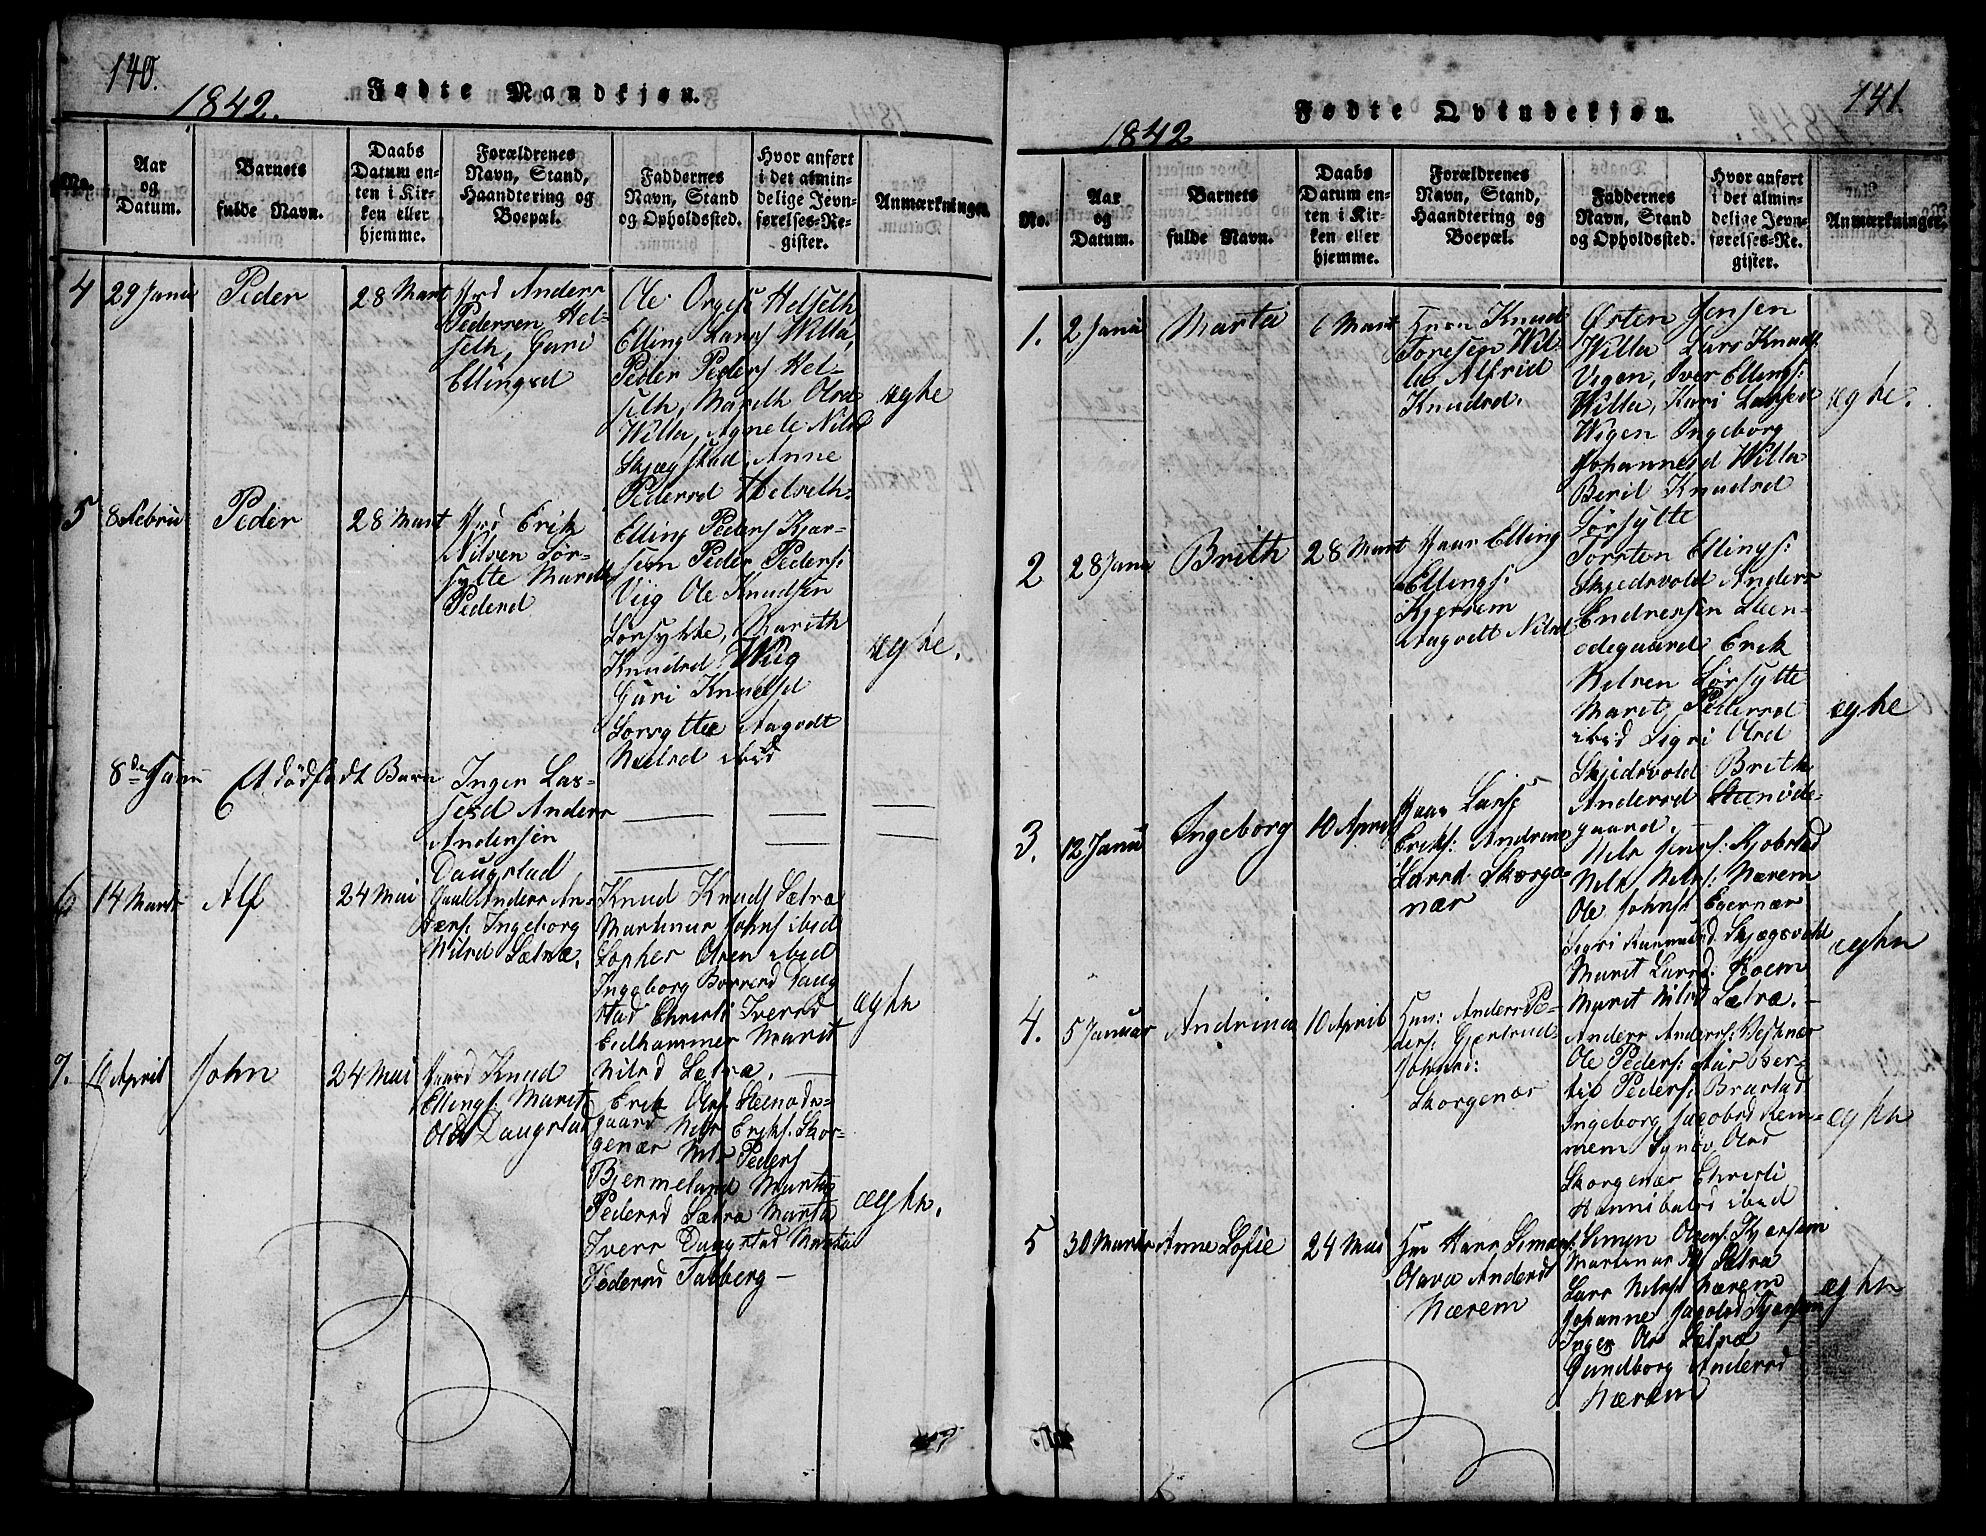 140.
1842.
Fødte Mandkjøn.
No.
Aar
og
Datum.
Barnets
fulde Navn.
Daabs
Datum en-
ten i Kir-
ken eller
hjemme.
Forældrenes
Navn, Stand,
Haandtering og
Boepæl.
Faddernes
Navn, Stand
og Opholdssted.
Hvor anført
i det almin-
delige Jevn-
førelses-Re-
gister.
Anmærkninger.
4
29 Janu
Peder
28 Mart
Anders
Pedersen Hel-
seth, Guri
Ellingsd
Ole Helseth
Elling Larss Willa,
Peder Peders Hel-
seth, Marith Olsd
Willa, Agnete Nilsd
Skjægstad, Anne
Pedersd Helseth
æghe
5
8 Febru
Peder
28 Mart
Erik
Nilsen Sør-
sylte Marith
Pedersd
Elling Peders Kjær-
sem Peder Peders:
Viig Ole Knudsen
Sørsylte, Marith
Knudsd Wiig
Guri Knudsd
Sørsylte Aagodt
Nielsd ibid
æghe.
8de Janu
Et dödfødt Barn
Inger Las-
sesd Anders
Andersen
Daugstad
6
14 Marts
Alf
24 Mai
Anders An-
ders: Ingeborg
Nilsd Sætræ.
Knud Knuds Sætræ
Martinus Johns ibid
Sopher Olsen ibid
Ingeborg Daug
stad Christi Iversd
Eidhammer Marit
Nilsd Sætræ.
æghn
7.
April
John
24 Mai
Knud
Ellings: Marit
Olsd Daugstad
Erik Ols Steenøde-
gaard Nils Eriks: Skor-
genær Nils Peders
Bjermeland Marta
Pedersd Sætræ Marta
Ivers Daugstad Marta
Pedersd Talberg
æghn.
141.
1842
Fødte Qvindekjøn.
No.
Aar
og
Datum.
Barnets
fulde Navn.
Daabs
Datum en-
ten i Kir-
ken eller
hjemme.
Forældrenes
Navn, Stand,
Haandtering og
Boepæl.
Faddernes
Navn, Stand
og Opholdssted.
Hvor anført
i det almin-
delige Jevn-
førelses-Re-
gister.
Anmærkninger.
1.
2 Janu
Marta
6 Mart
Knud
Toresen Wil-
la Alfrid
Knudsd.
Østen Jensen
Willa Lars Knuds
Vigen, Iver Ellings:
Willa, Kari Larsen
Wigen Ingeborg
Johannesd Willa
Beril Knudsd
Sørsylte
æghe.
2
28 Janu
Brith
28 Mart
Elling
Ellings:
Kjersem
Aagodt Nilsd
Torsten Ellings:
Skjedsvold Anders
Endresen Steen-
ødegaard Erik
Nilsen Sørsylte
Marit Pedersd
ibid Sigri Olsd
Skjedsvold Brith
Andersd Steenøde-
gaard.
æghe
3.
12 Janu
Ingeborg
10 April
Lars
Eriks: Andrine
Larsd Skorge-
nær
Nils Jens: Kjobstad
Nils Nils: Nærem
Ole Johns: Egernær
Sigri Skjægsvold
Marit Larsd: Hoem
Marit Nilsd Sætræ.
æghn
4.
5 Januar
Andrina
10 April
Anders Pe-
ders: Gjertrud
Johnsd:
Skorgenær
Anders Anders: Vestnær
Ole Peders: Ber-
til Peders: Brastad
Ingeborg Jacobsd Rem-
mem Synøv Olsd
Skorgenær Christi
Hannibalsd ibid
æghn
5
30 Marts
Anne Sofie
24 Mai
Hans Simens:
Olava Andersd
Nærem
Simen Olsen: Kjersem
Martinus Sætræ
Lars Nils: Nærem
Johanne Jacobsd Kjersem
Inger Ols Sætræ
Gundborg Andersd
Nærem
æghn